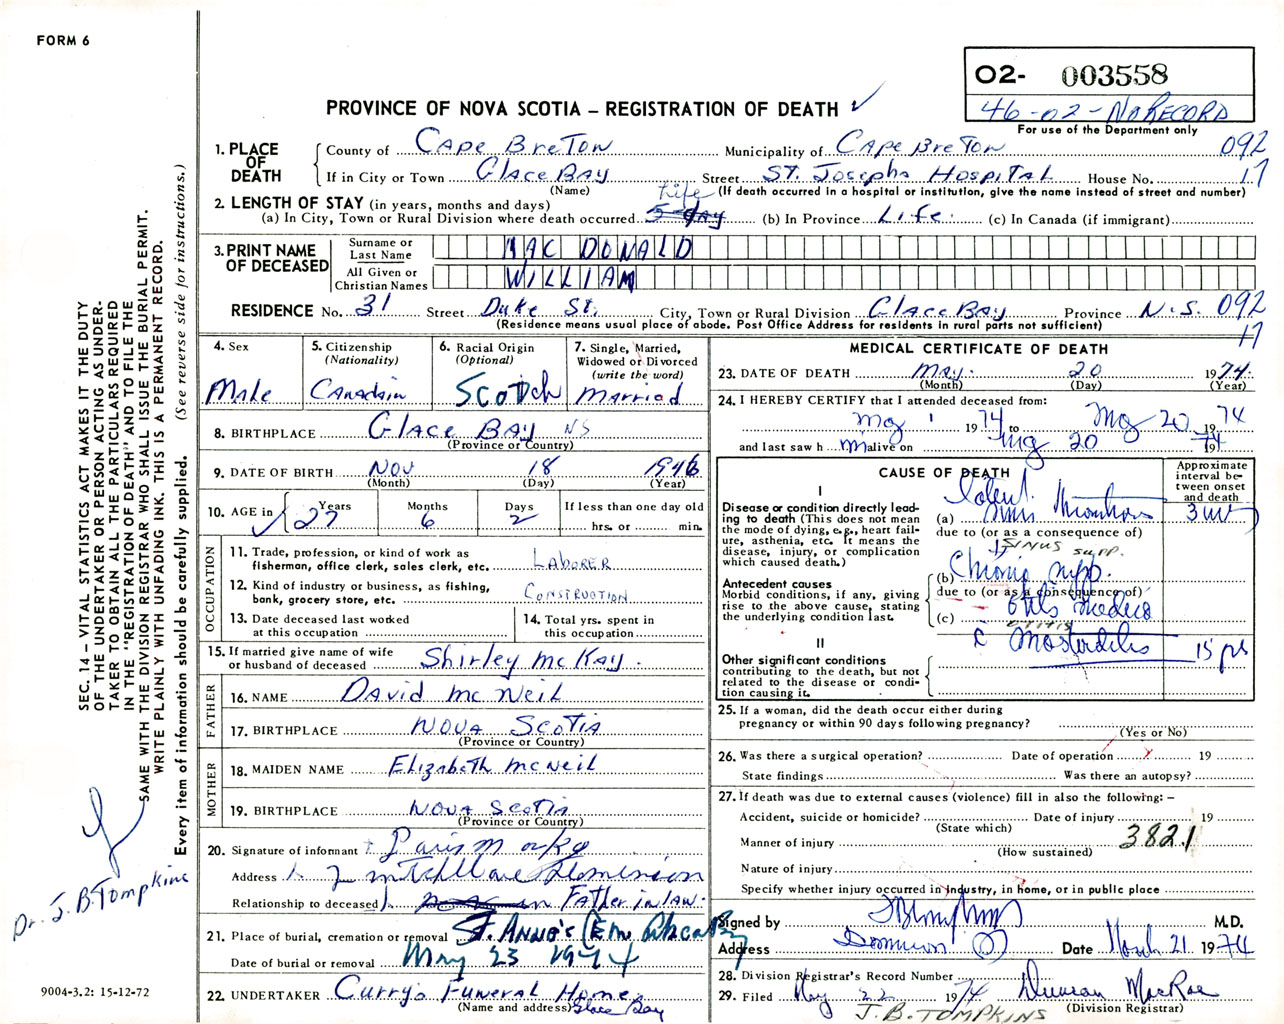 FORM 6
O2- 003558
46-02-NO RECORD
For use of the Department only
PROVINCE OF NOVA SCOTIA – REGISTRATION OF DEATH ✓
1. PLACE OF DEATH
County of Cape Breton Municipality of Cape Breton 092
If in City or Town Glace Bay Street St. Josephs Hospital House No. 17
(Name) (If death occurred in a hospital or institution, give the name instead of street and number)
2. LENGTH OF STAY (in years, months and days) Life
(a) In City, Town or Rural Division where death occurred 5 day (b) In Province Life. (c) In Canada (if immigrant)
3. PRINT NAME OF DECEASED
Surname or Last Name MAC DONALD
All Given or Christian Names WILLIAM
RESIDENCE No. 31 Street Duke St. City, Town or Rural Division Glace Bay Province N.S. 092
(Residence means usual place of abode. Post Office Address for residents in rural parts not sufficient) 17
4. Sex
Male
5. Citizenship (Nationality)
Canadain
6. Racial Origin (Optional)
Scotch
7. Single, Married, Widowed or Divorced (write the word)
Married
8. BIRTHPLACE Glace Bay NS
(Province or Country)
9. DATE OF BIRTH Nov 18 1946
(Month) (Day) (Year)
10. AGE in Years Months Days If less than one day old
27 6 2 hrs. or min.
OCCUPATION
11. Trade, profession, or kind of work as fisherman, office clerk, sales clerk, etc. LABORER
12. Kind of industry or business, as fishing, bank, grocery store, etc. CONSTRUCTION
13. Date deceased last worked at this occupation
14. Total yrs. spent in this occupation
15. If married give name of wife or husband of deceased Shirley McKay.
FATHER
16. NAME David McNeil
17. BIRTHPLACE Nova Scotia
(Province or Country)
MOTHER
18. MAIDEN NAME Elizabeth McNeil
19. BIRTHPLACE Nova Scotia
(Province or Country)
20. Signature of informant
Address Dominion
Relationship to deceased Father in law.
21. Place of burial, cremation or removal St. Anne's Cem Glace Bay
Date of burial or removal May 23 1974
22. UNDERTAKER Curry's Funeral Home
(Name and address) Glace Bay
MEDICAL CERTIFICATE OF DEATH
23. DATE OF DEATH May. 20 1974.
(Month) (Day) (Year)
24. I HEREBY CERTIFY that I attended deceased from:
May 1 1974 to May 20 1974
and last saw h im alive on May 20 1974
CAUSE OF DEATH
Approximate interval between onset and death
I
Disease or condition directly leading to death (This does not mean the mode of dying, e.g., heart failure, asthenia, etc. It means the disease, injury, or complication which caused death.)
(a) Lateral Sinus Thrombosis 3 wks
due to (or as a consequence of)
SINUS SUPP.
Antecedent causes
Morbid conditions, if any, giving rise to the above cause, stating the underlying condition last.
(b) Chronic supp.
due to (or as a consequence of)
(c) Otitis Media
OTITIS
c Mastoiditis 15 yrs
II
Other significant conditions contributing to the death, but not related to the disease or condition causing it.
25. If a woman, did the death occur either during pregnancy or within 90 days following pregnancy?
(Yes or No)
26. Was there a surgical operation? Date of operation 19
State findings Was there an autopsy?
27. If death was due to external causes (violence) fill in also the following: –
Accident, suicide or homicide? Date of injury 19
(State which)
Manner of injury 3821
(How sustained)
Nature of injury
Specify whether injury occurred in Industry, in home, or in public place
Signed by JBTompkins M.D.
Address Dominion Date March 21 1974
28. Division Registrar's Record Number
29. Filed May 22 1974 Duncan MacRae
J.B. TOMPKINS (Division Registrar)
SEC. 14 – VITAL STATISTICS ACT MAKES IT THE DUTY
OF THE UNDERTAKER OR PERSON ACTING AS UNDER-
TAKER TO OBTAIN ALL THE PARTICULARS REQUIRED
IN THE "REGISTRATION OF DEATH" AND TO FILE THE
SAME WITH THE DIVISION REGISTRAR WHO SHALL ISSUE THE BURIAL PERMIT.
WRITE PLAINLY WITH UNFADING INK. THIS IS A PERMANENT RECORD.
Every item of information should be carefully supplied. (See reverse side for instructions.)
Dr. J.B. Tompkins
9004-3.2: 15-12-72